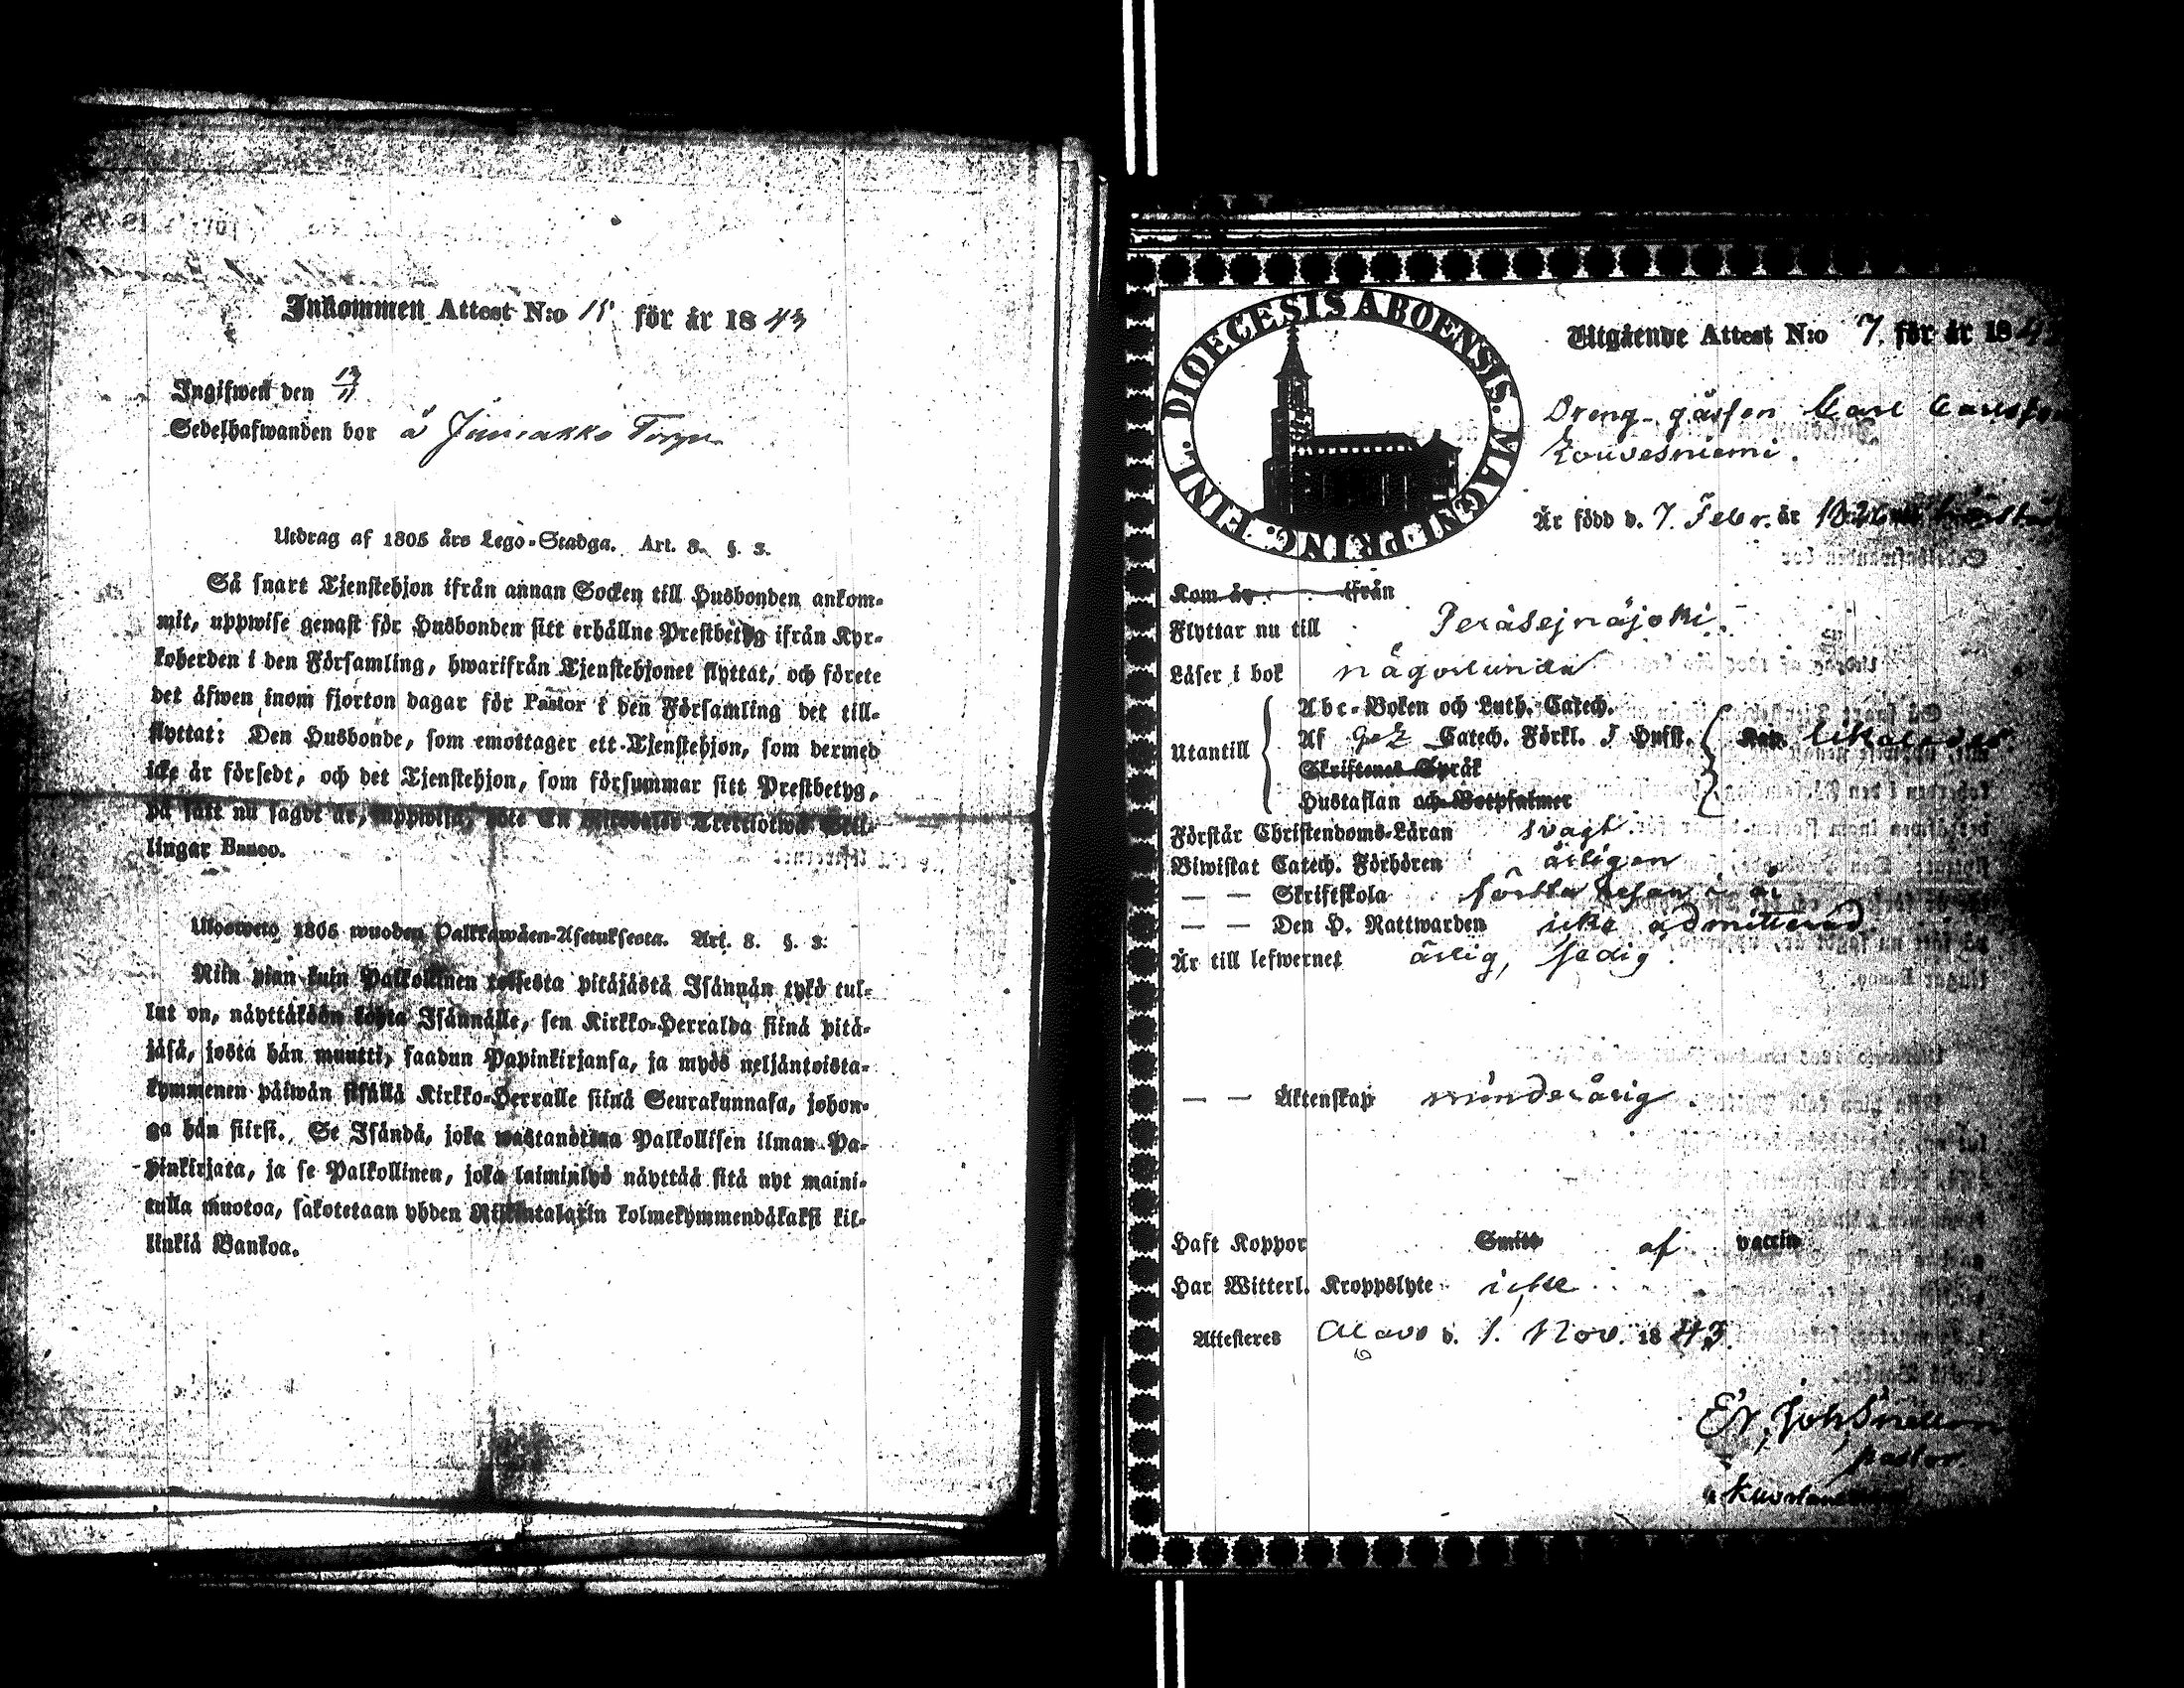 Inkommen Attest N:o 15 för år 1843
Ingifwen den 13/11
Sedelhafwanden bor å Torp
Utdrag af 1805 års Lego-Stadga. Art. 8. §. 3.
Så snart Tjenstehjon ifrån annan Socken till Husbonden ankom-
mit, uppwise genast för Husbonden sitt erhållne Prestbetyg ifrån Kyr-
koherden i den Församling, hwarifrån Tjenstehjonet flyttat, och förete
det äfwen inom fjorton dagar för Pastor i den Församling det till-
flyttat: Den Husbonde, som emottager ett Tjenstehjon, som dermed
icke är försedt, och det Tjenstehjon, som försummar sitt Prestbetyg,
på sätt nu sagdt är, uppwisa, böte En Riksdaler Trettiotwå Skil-
lingar Banco.
Ulosweto 1805 wuoden Palkkawäen-Asetuksesta. Art. 8. §. 3.
Niin pian kuin Palkollinen toisesta pitäjästä Isännän tykö tul-
lut on, näyttäköön kohta Isännälle, sen Kirkko-Herralda siinä pitä-
jäsä, josta hän muutti, saadun Papinkirjansa, ja myös neljäntoista-
kymmenen päiwän sisällä Kirkko-Herralle siinä Seurakunnasa, johon-
ga hän siirsi. Se Isändä, joka wastanottaa Palkollisen ilman Pa-
pinkirjata, ja se Palkollinen, joka laiminlyö näyttää sitä nyt maini-
tulla muotoa, sakotetaan yhden Riikintalarin kolmekymmendäkaksi kil-
linkiä Bankoa.
DIOECESIS ABOENSIS. MAGNI PRINC. FINL.
Utgående Attest N:o 7. för år 1843
Dreng-gåssen Carl Carlsson
Louvesniemi.
Är född d. 7. Febr. år
Kom år ifrån
Flyttar nu till Peräsejnäjoki.
Läser i bok någorlunda
Utantill
Abc-Boken och Luth. Catech.
Af Catech. Förkl. I Hufst. Kap. likaledes.
Skriftenes Språk
Hustaflan och Botpsalmer
Förstår Christendoms-Läran svagt.
Biwistat Catech. Förhören årligen
— — Skriftskola första resan i år
— — Den H. Nattwarden icke admitterad
Är till lefwernet ärlig, sedig.
— — Äktenskap minderårig.
Haft Koppor Smitt af vaccin
Har Witterl. Kroppslyte icke
Attesteres Alavo d. 1. Nov. 1843.
Er. Joh. Snellman
pastor.